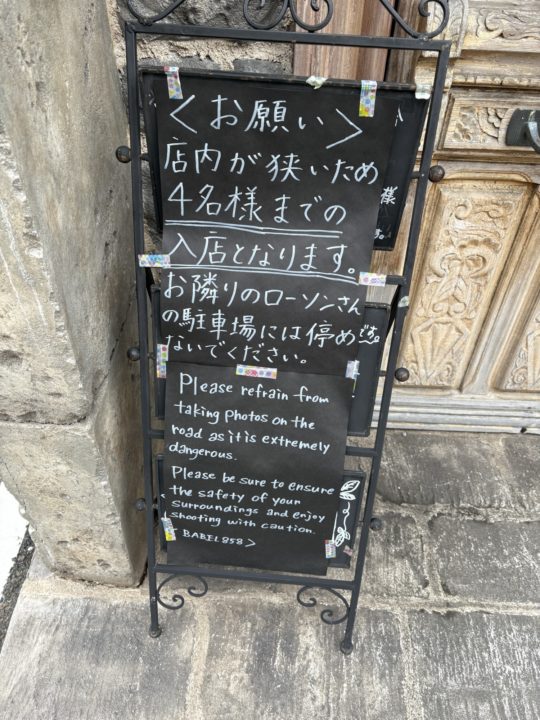 ＜お願い＞
店内が狭いため
4名様までの
入店となります。
お隣りのローソンさん
の駐車場には停め
ないでください。
様
す。
です。
Please refrain from
taking photos on the
road as it is extremely
dangerous.
Please be sure to ensure
the safety of your
surroundings and enjoy
shooting with caution.
BABEL858＞